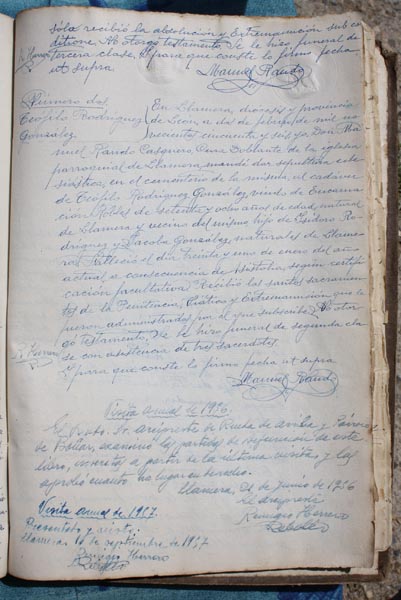 sólo recibió la absolución y Extremaunción sub con
ditione. No otorgó testamento. Se le hizo funeral de
tercera clase. Y para que conste lo firmo fecha
ut supra
Manuel Rando
Número dos
Teófilo Rodríguez
González
En Llamera, diócesis y provincia
de León, a dos de febrero de mil no
vecientos cincuenta y seis, yo Don Ma
nuel Rando Casquero, Cura Ecónomo de la iglesia
parroquial de Llamera, mandé dar sepultura ecle
siástica, en el cementerio de la misma, al cadáver
de Teófilo Rodríguez González, viudo de Encarna
ción Robles de setenta y ocho años de edad, natural
de Llamera y vecino del mismo, hijo de Isidoro Ro
dríguez y Jacoba González, naturales de Llame
ra. Falleció el día treinta y uno de enero del año
actual a consecuencia de Asistolia, según certifi
cación facultativa. Recibió los santos sacramen
tos de la Penitencia, Viático y Extremaunción que le
fueron administrados por el que subscribe. No otor
gó testamento. Se le hizo funeral de segunda cla
se con asistencia de tres sacerdotes.
Y para que conste lo firmo fecha ut supra
Manuel Rando
Visita anual de 1956.
El Rvdo. Sr. arcipreste de Rueda de arriba y Párroco
de Boñar, examinó las partidas de defunción de este
libro, insertas a partir de la última visita, y las
aprobó cuanto ha lugar en derecho.
Llamera, 21 de Junio de 1956
El arcipreste
Remigio Herrero
Rebollo
Visita anual de 1957
Presentado y visto.
Llamera 10 de septiembre de 1957
Remigio Herrero